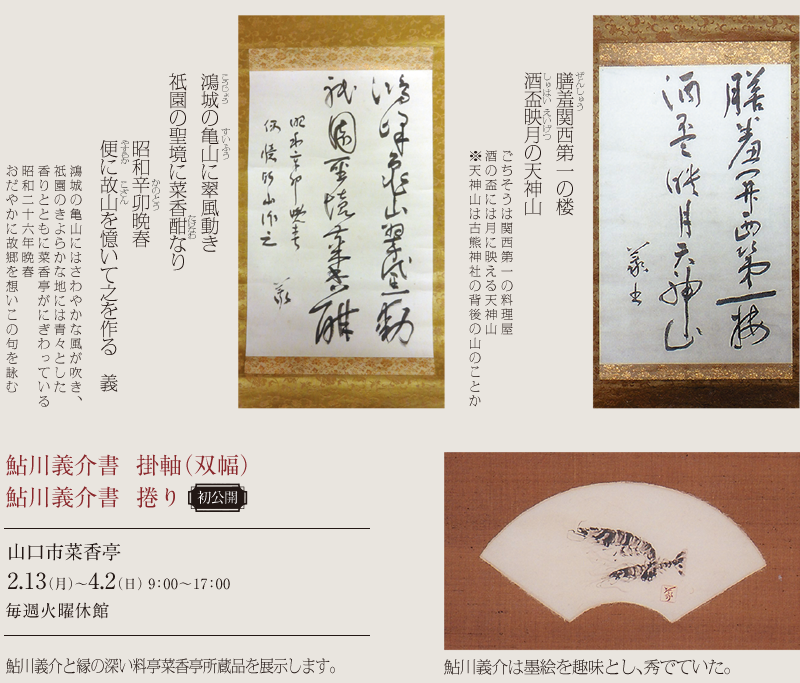 膳羞関西第一の楼
酒盃映月の天神山
ごちそうは関西第一の料理屋
酒の盃には月に映える天神山
※天神山は古熊神社の背後の山のことか
膳羞関西第一楼
酒盃映月天神山
義書
鴻城の亀山に翠風動き
祇園の聖境に菜香酣なり
昭和辛卯晩春
便に故山を憶いて之を作る 義
鴻城の亀山にはさわやかな風が吹き、
祇園のきよらかな地には青々とした
香りとともに菜香亭がにぎわっている
昭和二十六年晩春
おだやかに故郷を想いこの句を詠む
鴻城亀山翠風動
祇園聖境菜香酣
昭和辛卯晩春
義
鮎川義介書 掛軸(双幅)
鮎川義介書 捲り 初公開
山口市菜香亭
2.13(月)~4.2(日) 9:00~17:00
毎週火曜休館
鮎川義介と縁の深い料亭菜香亭所蔵品を展示します。
鮎川義介は墨絵を趣味とし、秀でていた。